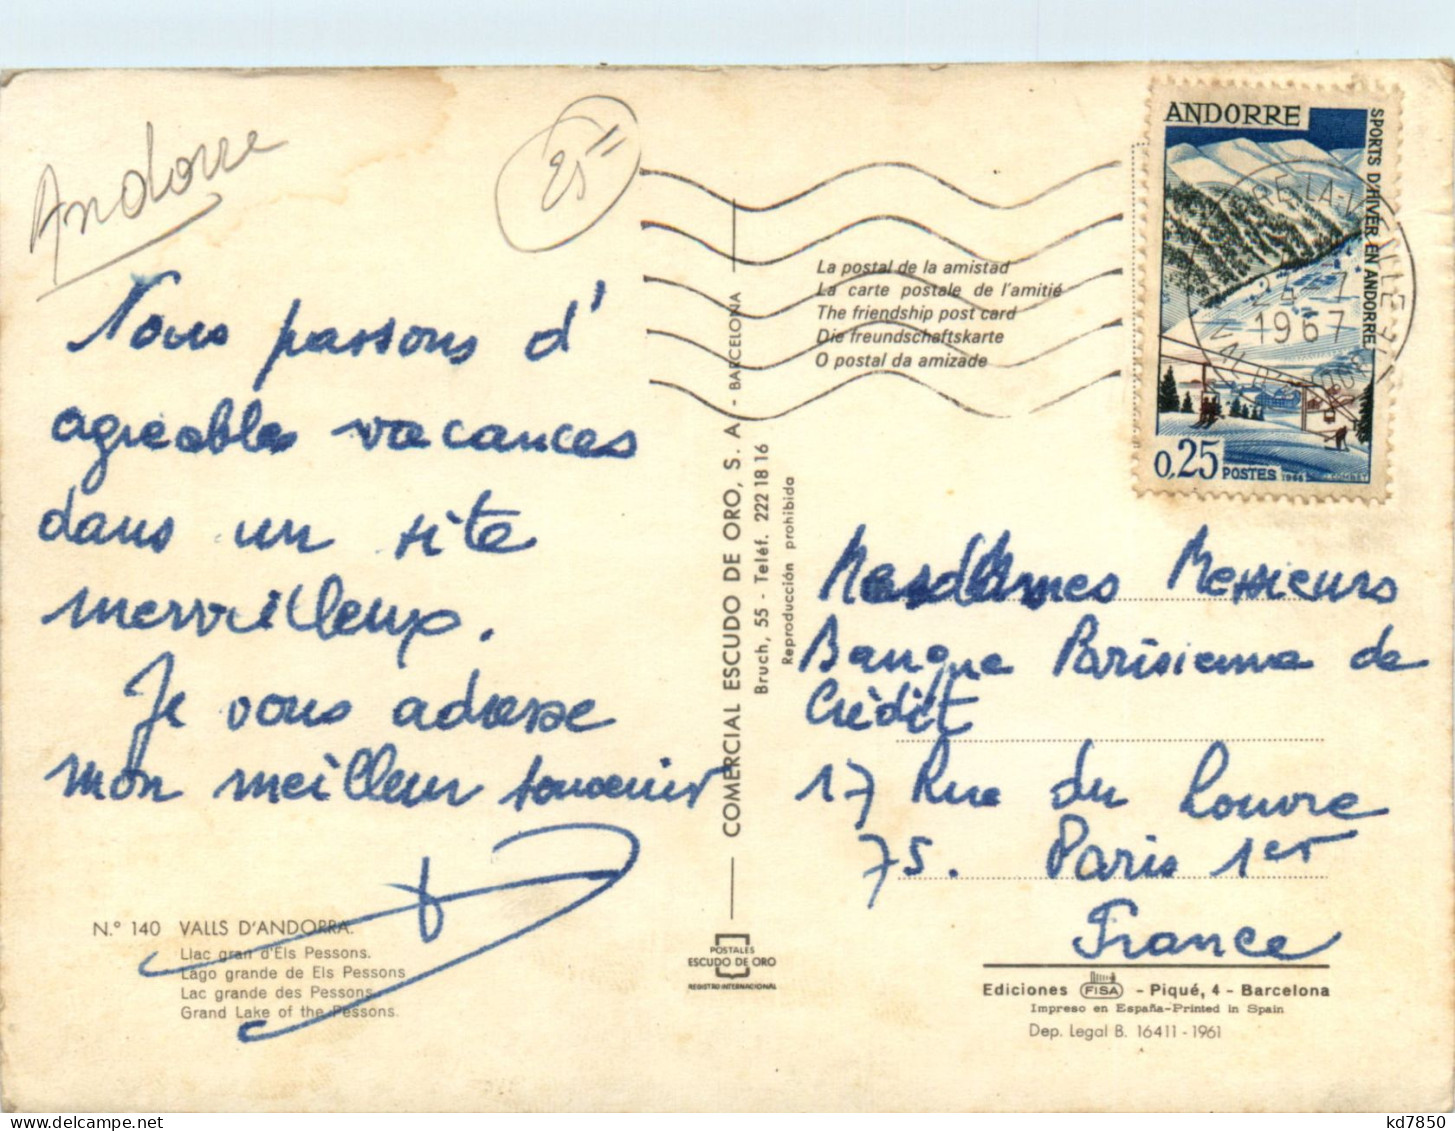 Andorre
25"
Nous passons d'
agréables vacances
dans un site
merveilleux.
Je vous adresse
mon meilleur souvenir
N.º 140 VALLS D'ANDORRA.
Llac gran d'Els Pessons.
Lago grande de Els Pessons
Lac grande des Pessons.
Grand Lake of the Pessons.
COMERCIAL ESCUDO DE ORO, S. A. - BARCELONA
Bruch, 55 - Teléf. 222 18 16
Reproducción prohibida
POSTALES
ESCUDO DE ORO
REGISTRO INTERNACIONAL
La postal de la amistad
La carte postale de l'amitié
The friendship post card
Die freundschaftskarte
O postal da amizade
ANDORRE
SPORTS D'HIVER EN ANDORRE
0,25 POSTES 1966 COMBET
RE-LA-VIEILLE
24-7
1967
Mesdames Messieurs
Banque Parisienne de
Crédit
17 Rue du Louvre
75. Paris 1er
France
Ediciones FISA - Piqué, 4 - Barcelona
Impreso en España-Printed in Spain
Dep. Legal B. 16411 - 1961
kd7850